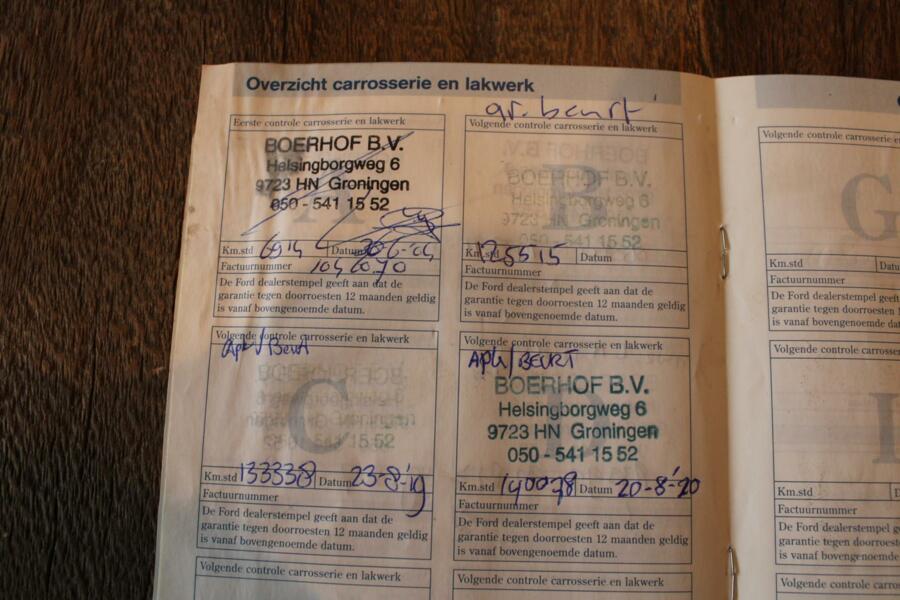 Overzicht carrosserie en lakwerk
Eerste controle carrosserie en lakwerk
BOERHOF B.V.
Helsingborgweg 6
9723 HN Groningen
050 - 541 15 52
A
Km.std 6914 Datum
Factuurnummer
De Ford dealerstempel geeft aan dat de
garantie tegen doorroesten 12 maanden geldig
is vanaf bovengenoemde datum.
gr. beurt
Volgende controle carrosserie en lakwerk
B
BOERHOF B.V.
Helsingborgweg 6
9723 HN Groningen
050 - 541 15 52
Km.std 125515 Datum
Factuurnummer
De Ford dealerstempel geeft aan dat de
garantie tegen doorroesten 12 maanden geldig
is vanaf bovengenoemde datum.
Volgende controle carrosserie en lakwerk
apk/Beurt
C
541 15 52
Km.std 133338 Datum 23-8-'19
Factuurnummer
De Ford dealerstempel geeft aan dat de
garantie tegen doorroesten 12 maanden geldig
is vanaf bovengenoemde datum.
Volgende controle carrosserie en lakwerk
APK/BEURT
BOERHOF B.V.
Helsingborgweg 6
9723 HN Groningen
050 - 541 15 52
Km.std 140078 Datum 20-8-'20
Factuurnummer
De Ford dealerstempel geeft aan dat de
garantie tegen doorroesten 12 maanden geldig
is vanaf bovengenoemde datum.
Volgende controle carrosserie en lakwerk
Volgende controle carrosserie en lakwerk
Volgende controle carrosserie en
G
Km.std
Factuurnummer
De Ford dealerstempel
garantie tegen doorroesten
is vanaf bovengenoemde
Volgende controle carrosserie en
Km.std
Factuurnummer
De Ford dealerstempel
garantie tegen doorroesten
is vanaf bovengenoemde
Volgende controle carrosserie en